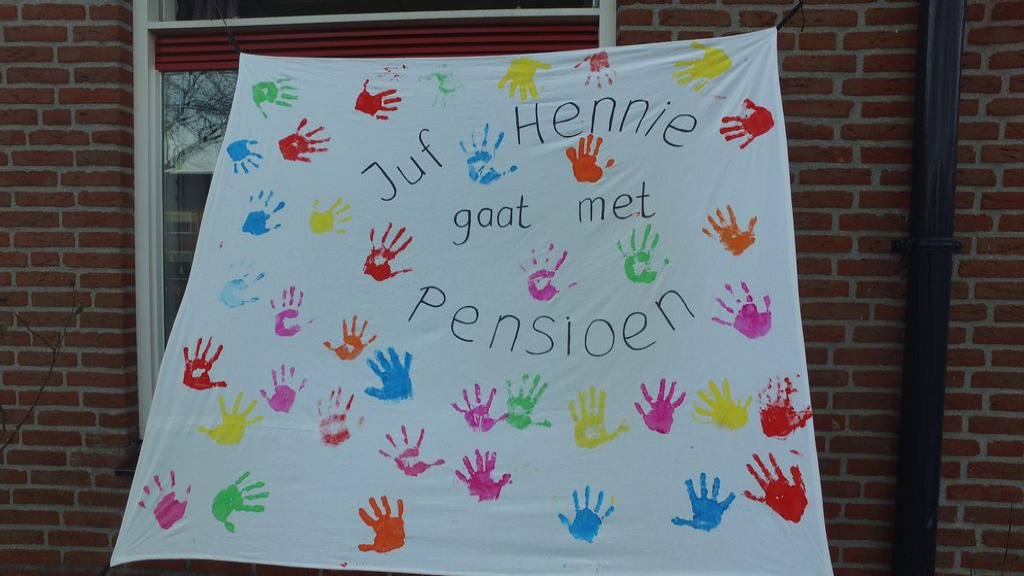 Juf Hennie
gaat met
Pensioen